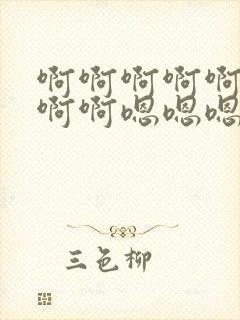 啊啊啊啊啊
啊啊嗯嗯嗯
三色柳